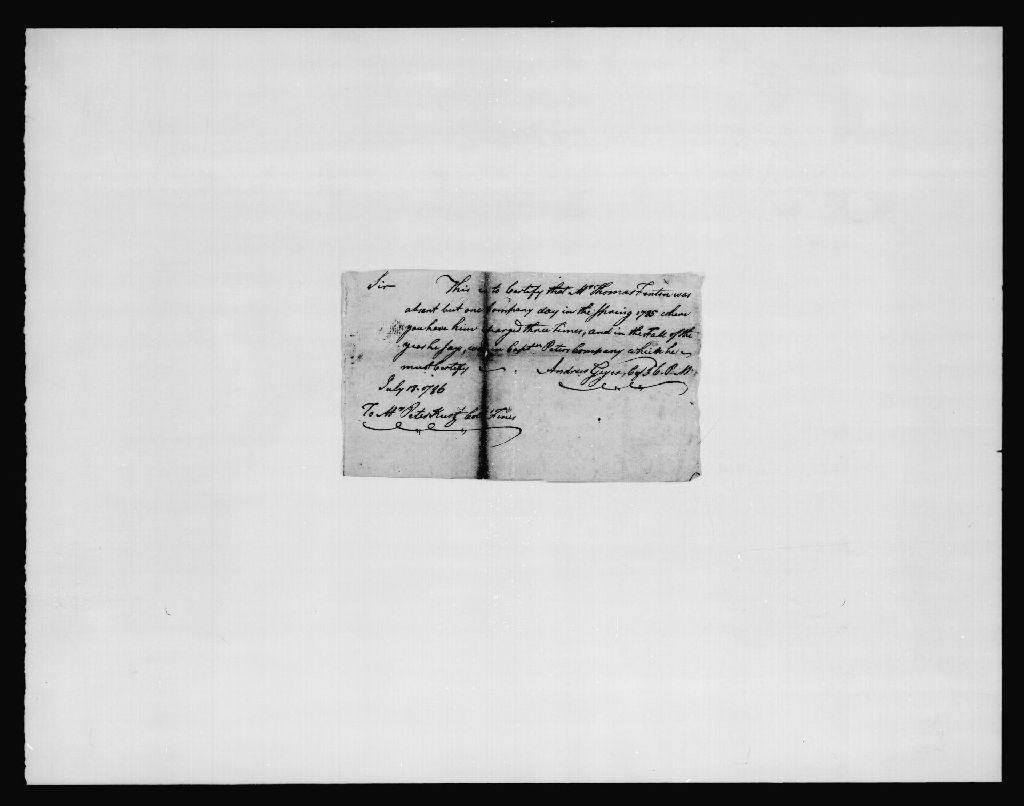 Sir This is to Certify that Mr Thomas Fenton was
absent but one Company day in the Spring 1785 where
you have him charged three times, and in the Fall of the
year he says, was in Captn Peters Company which he
must Certify Andrew Geyer, Capt 3 C. P. M.
July 18. 1786
To Mr Peter Kurtz Coll Fines